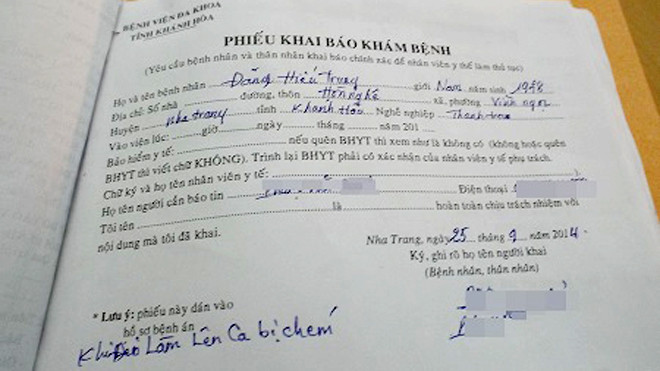 BỆNH VIỆN ĐA KHOA
TỈNH KHÁNH HÒA
PHIẾU KHAI BÁO KHÁM BỆNH
(Yêu cầu bệnh nhân và thân nhân khai báo chính xác để nhân viên y tế làm thủ tục)
Họ và tên bệnh nhân Đặng Hiếu Trung giới Nam năm sinh 1978
Địa chỉ: Số nhà ........ đường, thôn Hòn nghê xã, phường Vĩnh ngọc
Huyện nha trang tỉnh Khánh Hòa Nghề nghiệp
Vào viện lúc: ........ giờ ........ ngày ........ tháng ........ năm 201 ....
Bảo hiểm y tế: ........ nếu quên BHYT thì xem như là không có (không hoặc quên
BHYT thì viết chữ KHÔNG). Trình lại BHYT phải có xác nhận của nhân viên y tế phụ trách.
Chữ ký và họ tên nhân viên y tế: ........ ).
Họ tên người cần báo tin ........ Điện thoại
Tôi tên ........ là ........ hoàn toàn chịu trách nhiệm với
nội dung mà tôi đã khai.
Nha Trang, ngày 25 tháng 9 năm 2014.
Ký, ghi rõ họ tên người khai
(Bệnh nhân, thân nhân)
* Lưu ý: phiếu này dán vào
hồ sơ bệnh án
Làm Lên Ca bị chém